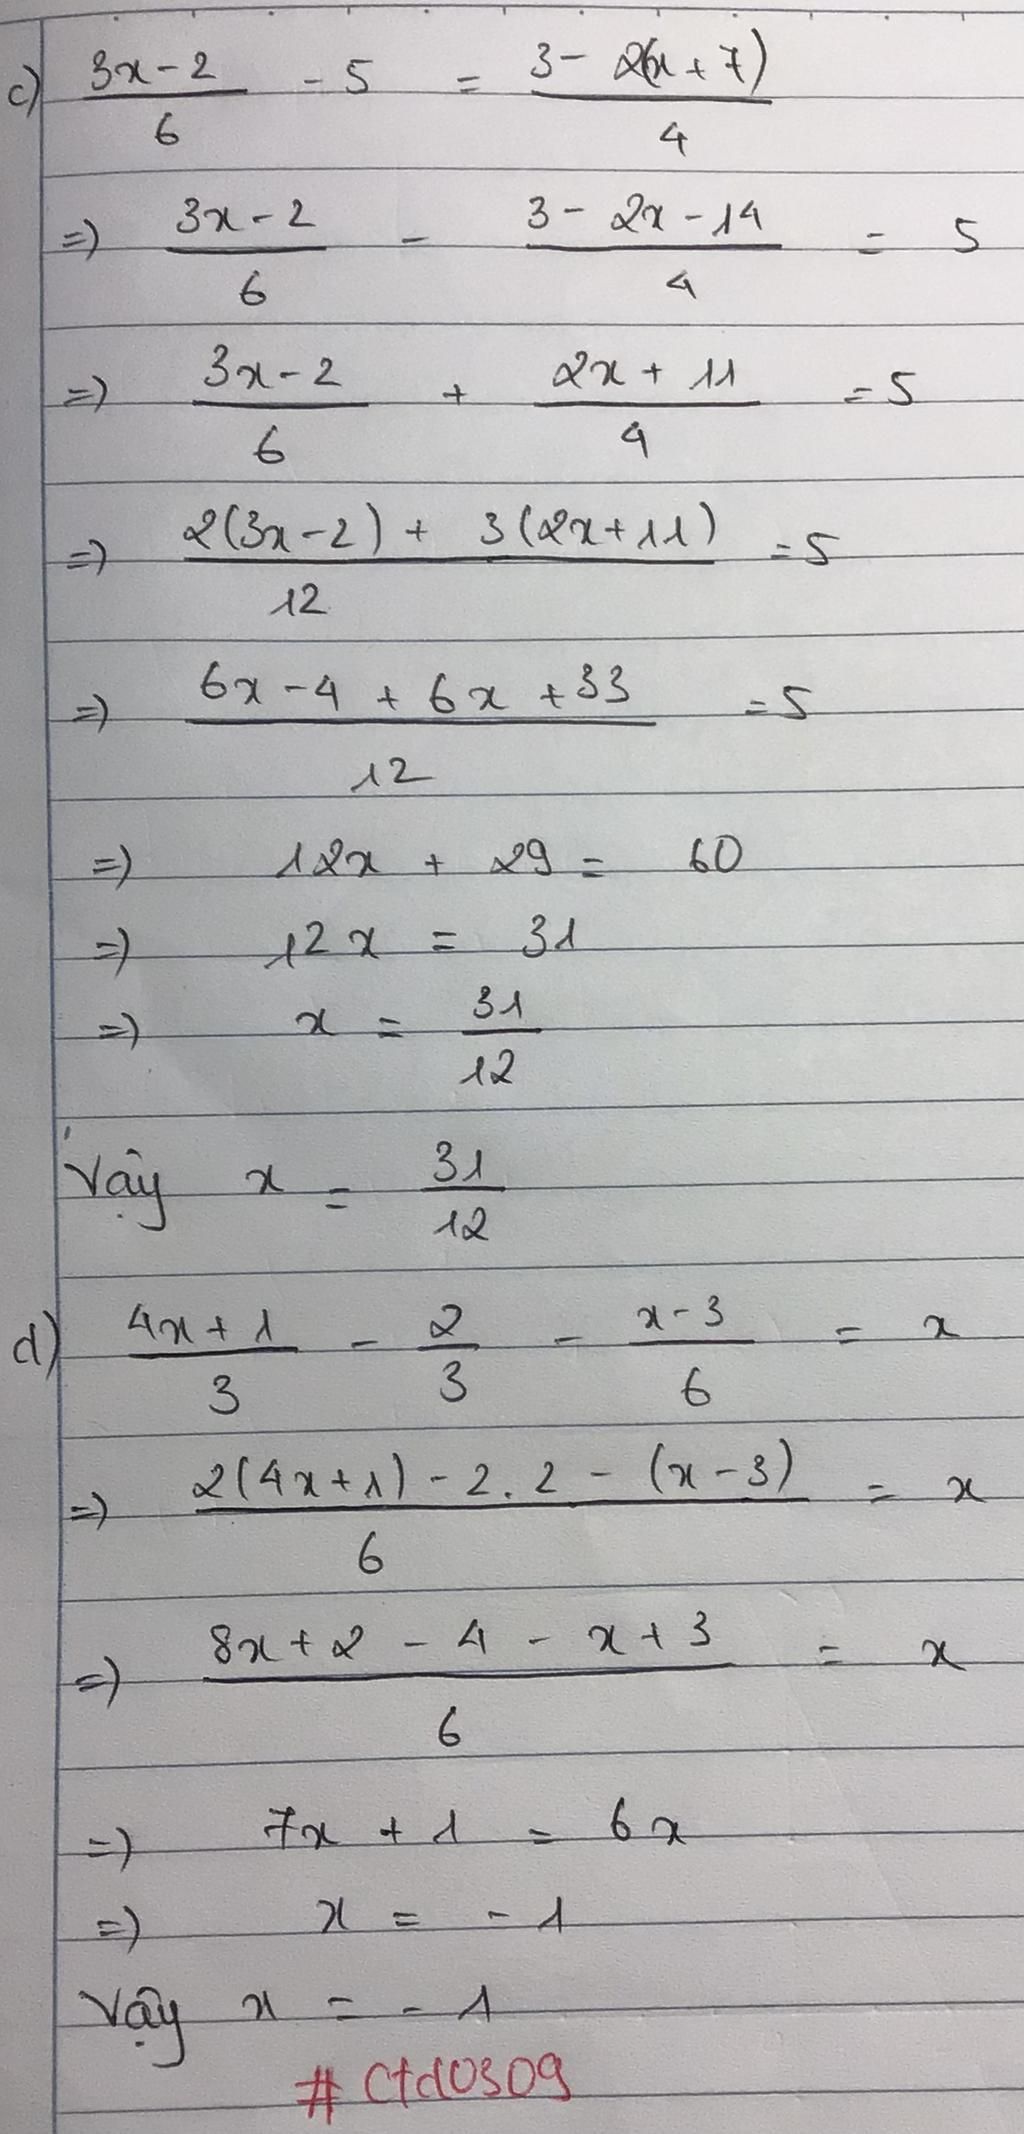 c) (3x-2)/6 - 5 = (3 - 2(x+7))/4
=> (3x-2)/6 - (3 - 2x - 14)/4 = 5
=> (3x-2)/6 + (2x + 11)/4 = 5
=> (2(3x-2) + 3(2x+11))/12 = 5
=> (6x - 4 + 6x + 33)/12 = 5
=> 12x + 29 = 60
=> 12x = 31
=> x = 31/12
Vậy x = 31/12
d) (4x+1)/3 - 2/3 - (x-3)/6 = x
=> (2(4x+1) - 2.2 - (x-3))/6 = x
=> (8x+2 - 4 - x+3)/6 = x
=> 7x + 1 = 6x
=> x = -1
Vậy x = -1
# Ctd0309